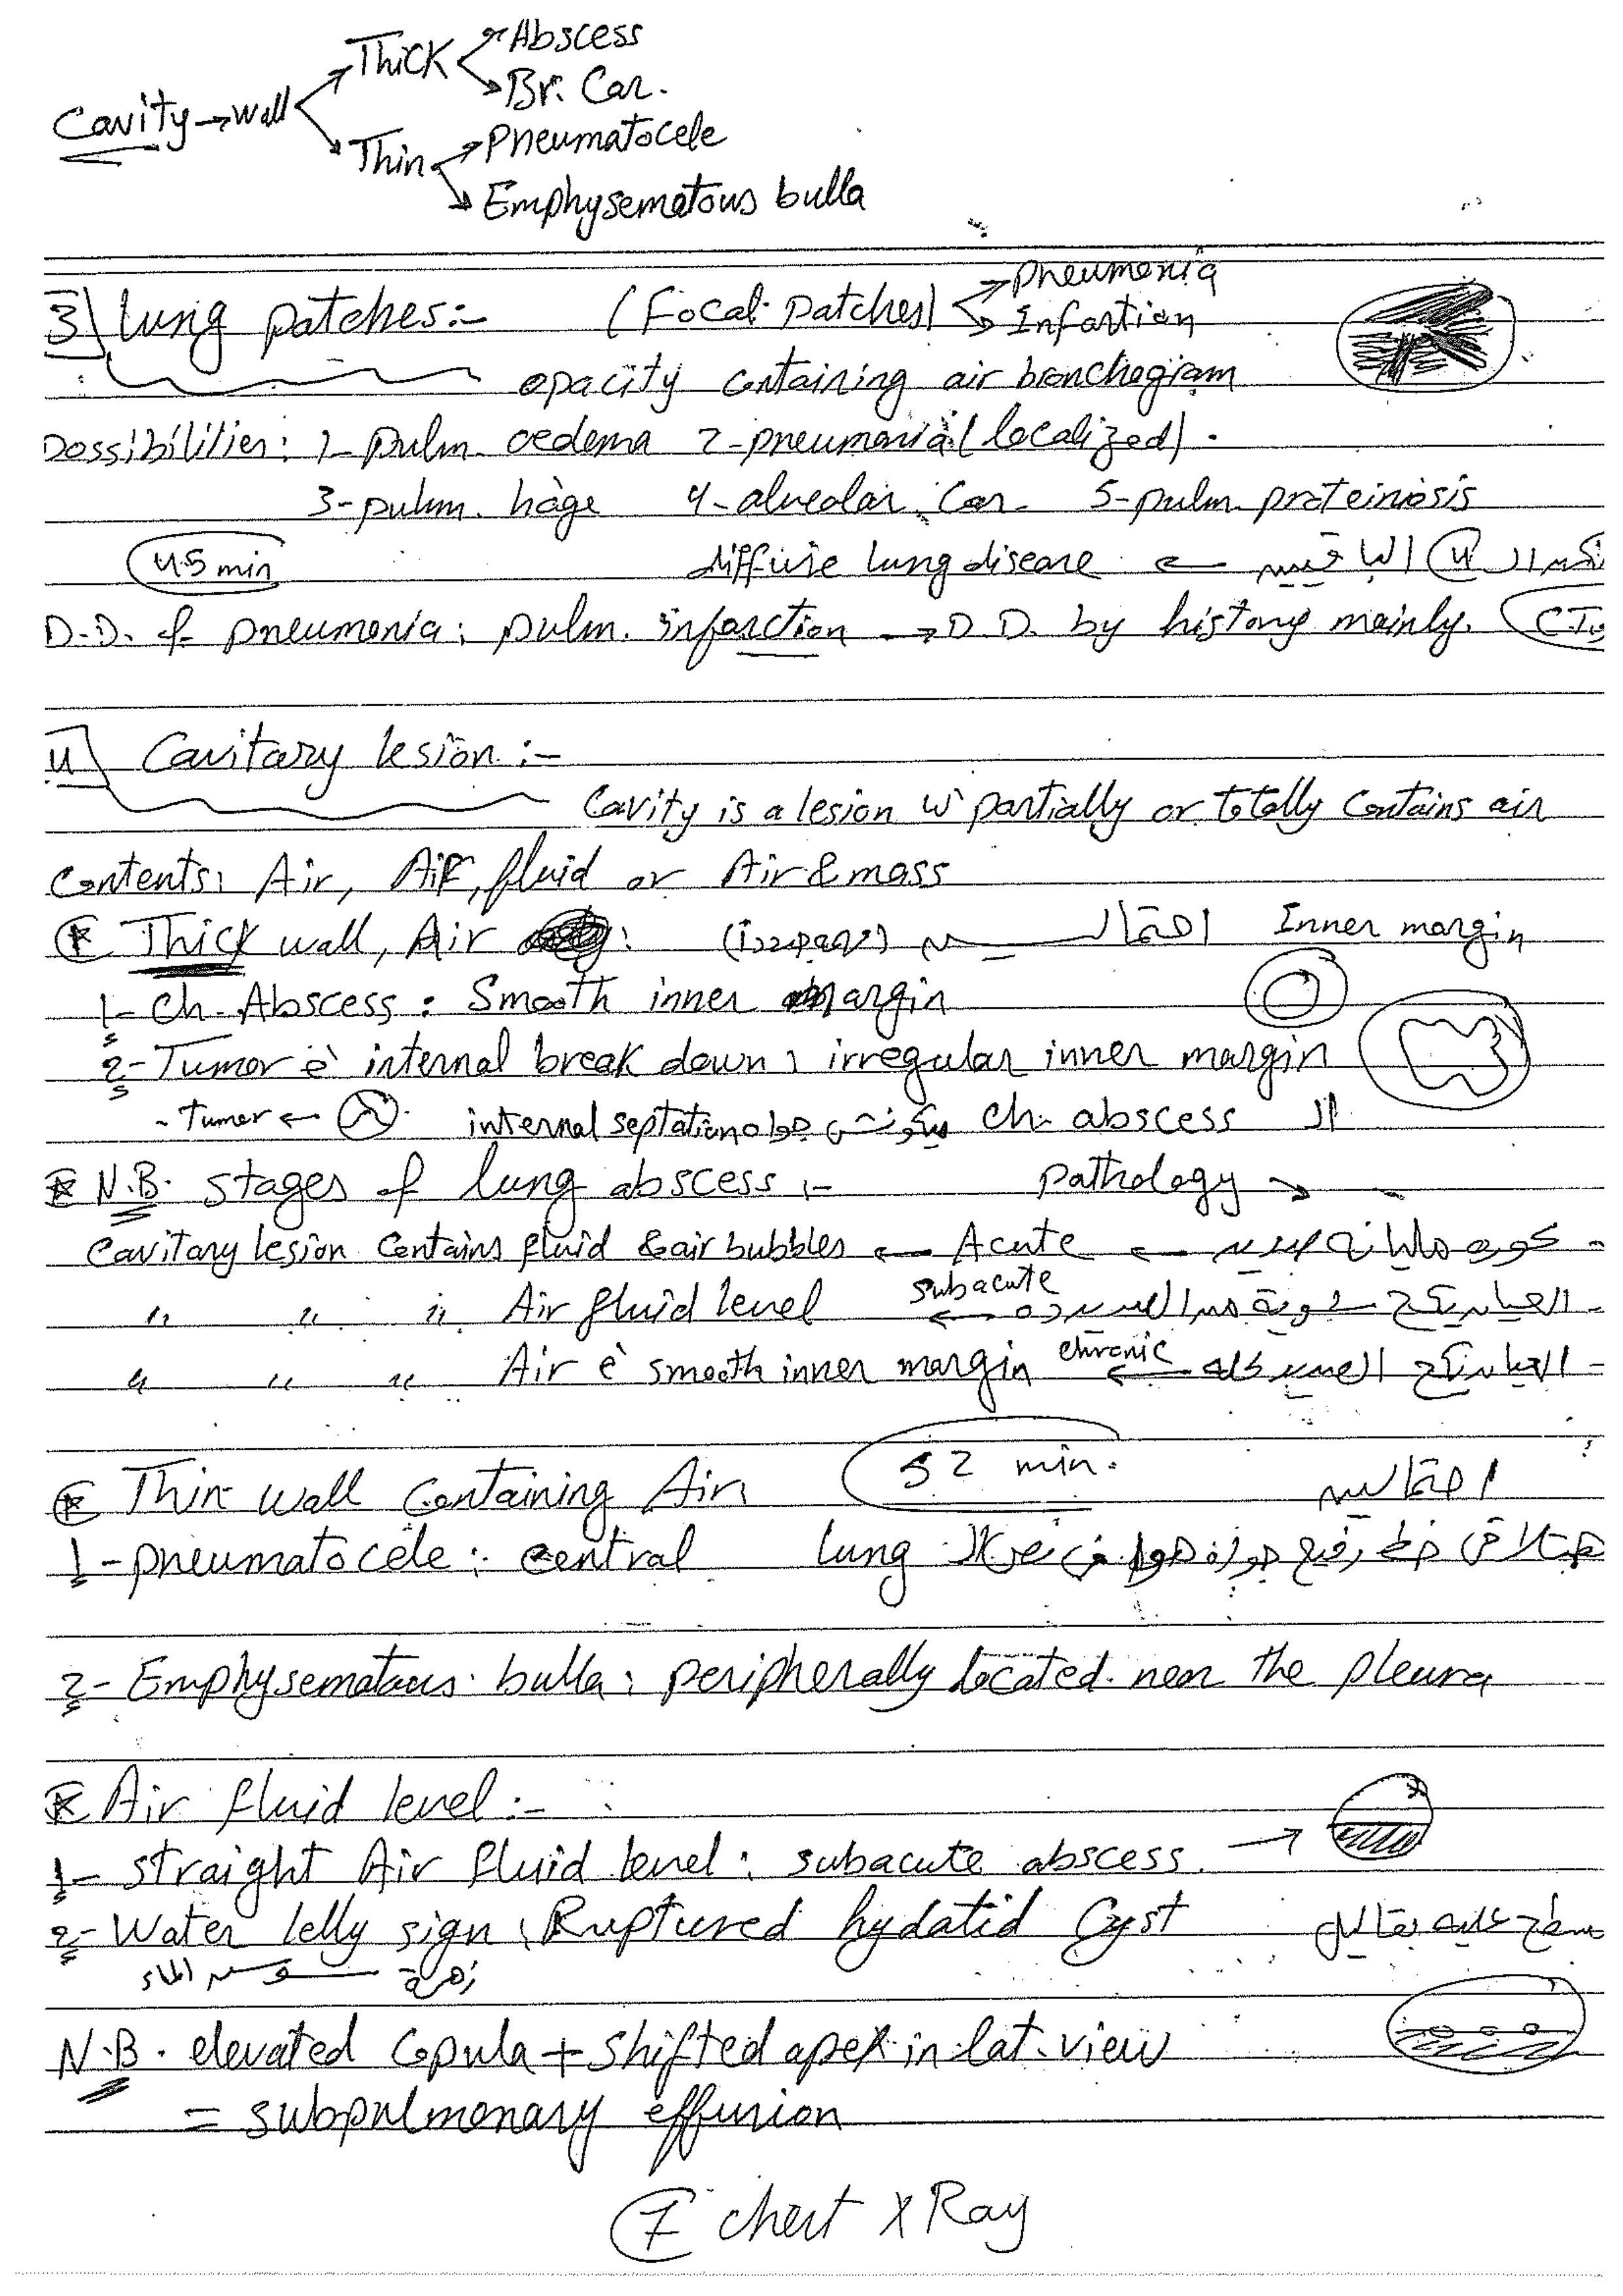 Cavity → wall
Thick
Abscess
Br. Car.
Thin
Pneumatocele
Emphysematous bulla
3) lung patches:- (Focal patches) Pneumonia
Infartion
opacity containing air bronchogram
Possibilities: 1- pulm. oedema 2- pneumonia (localized).
3- pulm. hage 4- alveolar Car. 5- pulm. proteinosis
45 min diffuse lung disease ←
D.D. of pneumonia: pulm. infarction → D.D. by history mainly. CT
4) Cavitary lesion:-
Cavity is a lesion w partially or totally contains air
Contents: Air, Air, fluid or Air & mass
* Thick wall, Air : Inner margin
1- Ch. Abscess: Smooth inner margin
2- Tumor è internal break down: irregular inner margin
الـ ch. abscess internal septation → Tumer
* N.B. stages of lung abscess:- pathology →
Cavitary lesion Contains fluid & air bubbles ← Acute ←
" " " Air fluid level subacute ←
" " " Air è smooth inner margin chronic ←
* Thin wall Containing Air: 52 min.
1- pneumatocele: central lung
2- Emphysematous bulla: peripherally located near the pleura
* Air fluid level:-
1- straight Air fluid level: subacute abscess. →
2- Water lelly sign: Ruptured hydatid Cyst
زهرة الماء
N.B. elevated Copula + shifted apex in lat. view
= subpulmonary effusion
7 chest X Ray